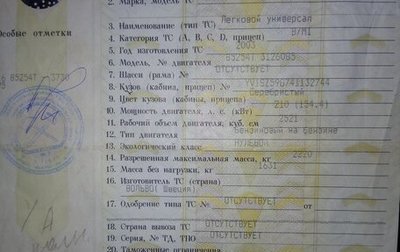 2. Марка, модель ТС
3. Наименование (тип ТС) Легковой универсал
Особые отметки
4. Категория ТС (A, B, C, D, прицеп) B/M1
5. Год изготовления ТС 2003
6. Модель, № двигателя B5254T 3126085
7. Шасси (рама) № ОТСУТСТВУЕТ
8. Кузов (кабина, прицеп) №
9. Цвет кузова (кабины, прицепа) Серебристый
10. Мощность двигателя, л. с. (кВт) 210 (154.4)
11. Рабочий объем двигателя, куб. см 2521
12. Тип двигателя Бензиновый на бензине
13. Экологический класс НУЛЕВОЙ
14. Разрешенная максимальная масса, кг 2220
15. Масса без нагрузки, кг 1631
16. Изготовитель ТС (страна)
ВОЛЬВО (Швеция)
17. Одобрение типа ТС № ОТСУТСТВУЕТ от
18. Страна вывоза ТС ОТСУТСТВУЕТ
19. Серия, № ТД, ТПО ОТСУТСТВУЕТ
20. Таможенные ограничения